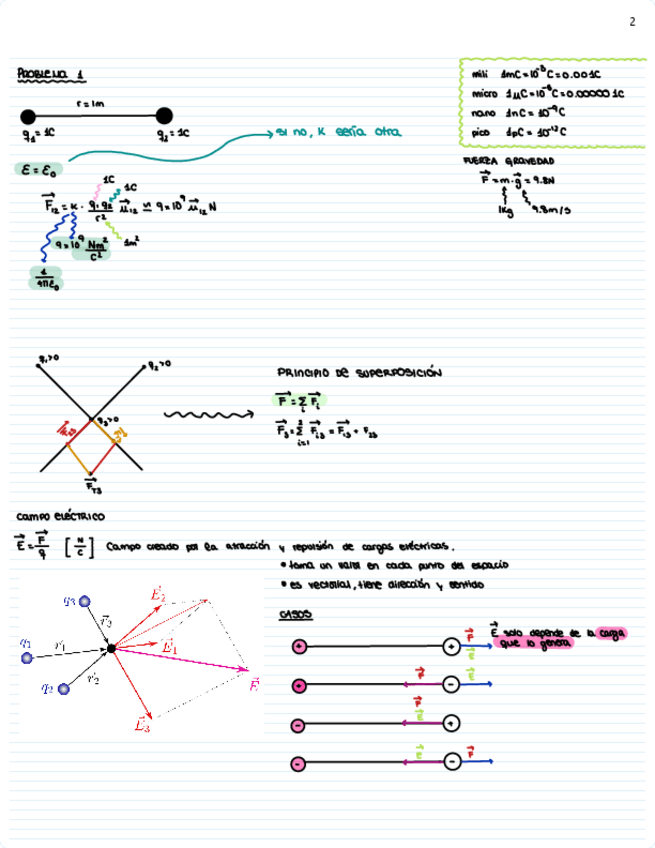 2
PROBLEMA 1
r=1m
q₁=1C
q₂=1C
ε=ε₀
si no, K sería otra
1C
1C
F₁₂ = K · q₁·q₂/r² μ₁₂ ≃ 9×10⁹ μ₁₂ N
1m²
9×10⁹ Nm²/C²
1/4πε₀
mili 1mC=10⁻³C=0.001C
micro 1μC=10⁻⁶C=0.000001C
nano 1nC = 10⁻⁹C
pico 1pC = 10⁻¹²C
FUERZA GRAVEDAD
F=m·g=9.8N
1kg
9.8m/s
q₁>0
q₂>0
q₃>0
F₁₃
F₂₃
F_T3
PRINCIPIO DE SUPERPOSICIÓN
F=Σᵢ Fᵢ
F₃=Σ²ᵢ₌₁ Fᵢ₃ = F₁₃ + F₂₃
CAMPO ELÉCTRICO
E=F/q [N/C] Campo creado por la atracción y repulsión de cargas eléctricas.
• toma un valor en cada punto del espacio
• es vectorial, tiene dirección y sentido
CASOS
q₃
r₃
q₁
r₁
q₂
r₂
E₂
E₁
E
E₃
+ + F E
E solo depende de la carga
que lo genera
+ F - E
- F E +
- E - F